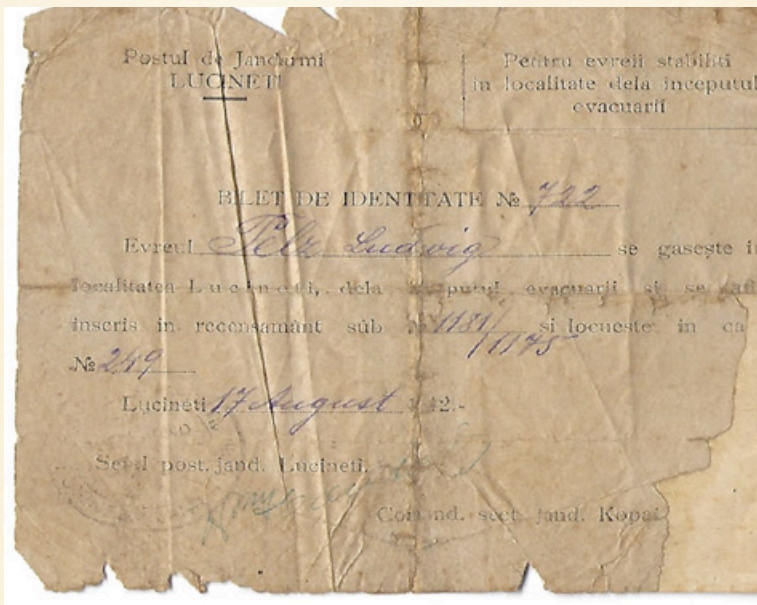 Postul de Jandarmi
LUCINETI
Pentru evreii stabiliti
in localitate dela inceputul
evacuarii
BILET DE IDENTITATE № 722
Evreul Pelz Ludwig se gasește in
localitatea Lucineti, dela inceputul evacuarii si se afl
inscris in recensamânt sub № 1181/1175 si locueste in ca
№ 249
Lucineti 17 August 942.-
Seful post. jand. Lucineti,
Comand. sect. jand. Kopai